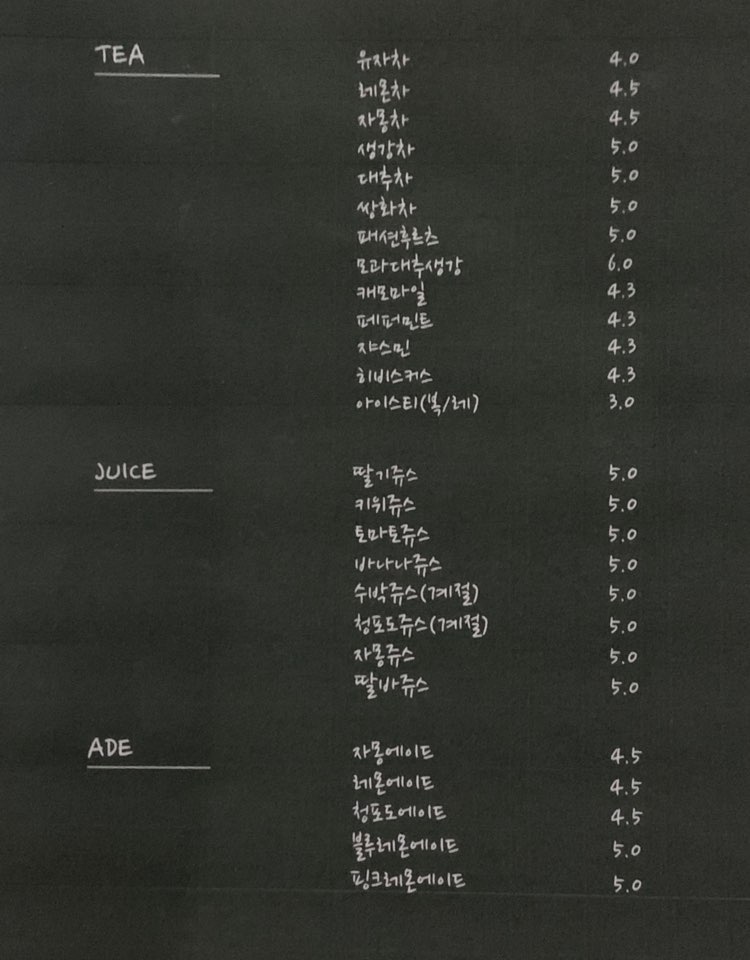 TEA
유자차 4.0
레몬차 4.5
자몽차 4.5
생강차 5.0
대추차 5.0
쌍화차 5.0
패션후르츠 5.0
모과대추생강 6.0
캐모마일 4.3
페퍼민트 4.3
쟈스민 4.3
히비스커스 4.3
아이스티(복/레) 3.0
JUICE
딸기쥬스 5.0
키위쥬스 5.0
토마토쥬스 5.0
바나나쥬스 5.0
수박쥬스(계절) 5.0
청포도쥬스(계절) 5.0
자몽쥬스 5.0
딸바쥬스 5.0
ADE
자몽에이드 4.5
레몬에이드 4.5
청포도에이드 4.5
블루레몬에이드 5.0
핑크레몬에이드 5.0